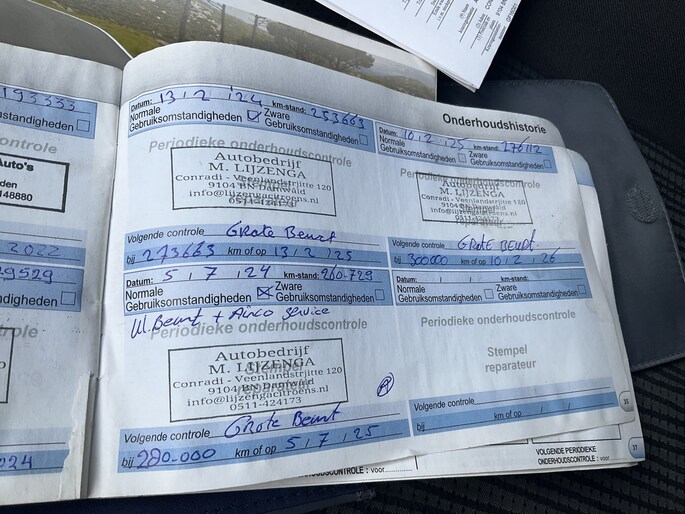 193333
standigheden
uto's
den
148880
2022
29529
tandigheden
024
Onderhoudshistorie
Datum: 13 / 2 / '24 km-stand: 253663
Normale Gebruiksomstandigheden ☑ Zware Gebruiksomstandigheden ☐
Periodieke onderhoudscontrole
Autobedrijf
M. LIJZENGA
Conradi - Veenlandstrjitte 120
9104 BN Damwâld
info@lijzengacitroens.nl
0511-424173
Volgende controle GROte BEURt
bij 273663 km of op 13 / 2 / 25
Datum: 5 / 7 / 24 km-stand: 260-729
Normale Gebruiksomstandigheden ☒ Zware Gebruiksomstandigheden ☐
Kl. Beurt + Airco Service
Periodieke onderhoudscontrole
Autobedrijf
M. LIJZENGA
Conradi - Veenlandstrjitte 120
9104 BN Damwâld
info@lijzengacitroens.nl
0511-424173
Volgende controle GROte Beurt
bij 280.000 km of op 5 / 7 / 25
Datum: 10 / 2 / 25 km-stand: 276112
Normale Gebruiksomstandigheden ☐ Zware Gebruiksomstandigheden ☐
Autobedrijf
M. LIJZENGA
Conradi - Veenlandstrjitte 120
9104 BN Damwâld
info@lijzengacitroens.nl
Volgende controle GROte BEURt
bij 300000 km of op 10 / 2 / 26
Datum: / / km-stand:
Normale Gebruiksomstandigheden ☐ Zware Gebruiksomstandigheden ☐
Periodieke onderhoudscontrole
Stempel
reparateur
Volgende controle
bij km of op / /
35
37
VOLGENDE PERIODIEKE
ONDERHOUDSCONTROLE : voor